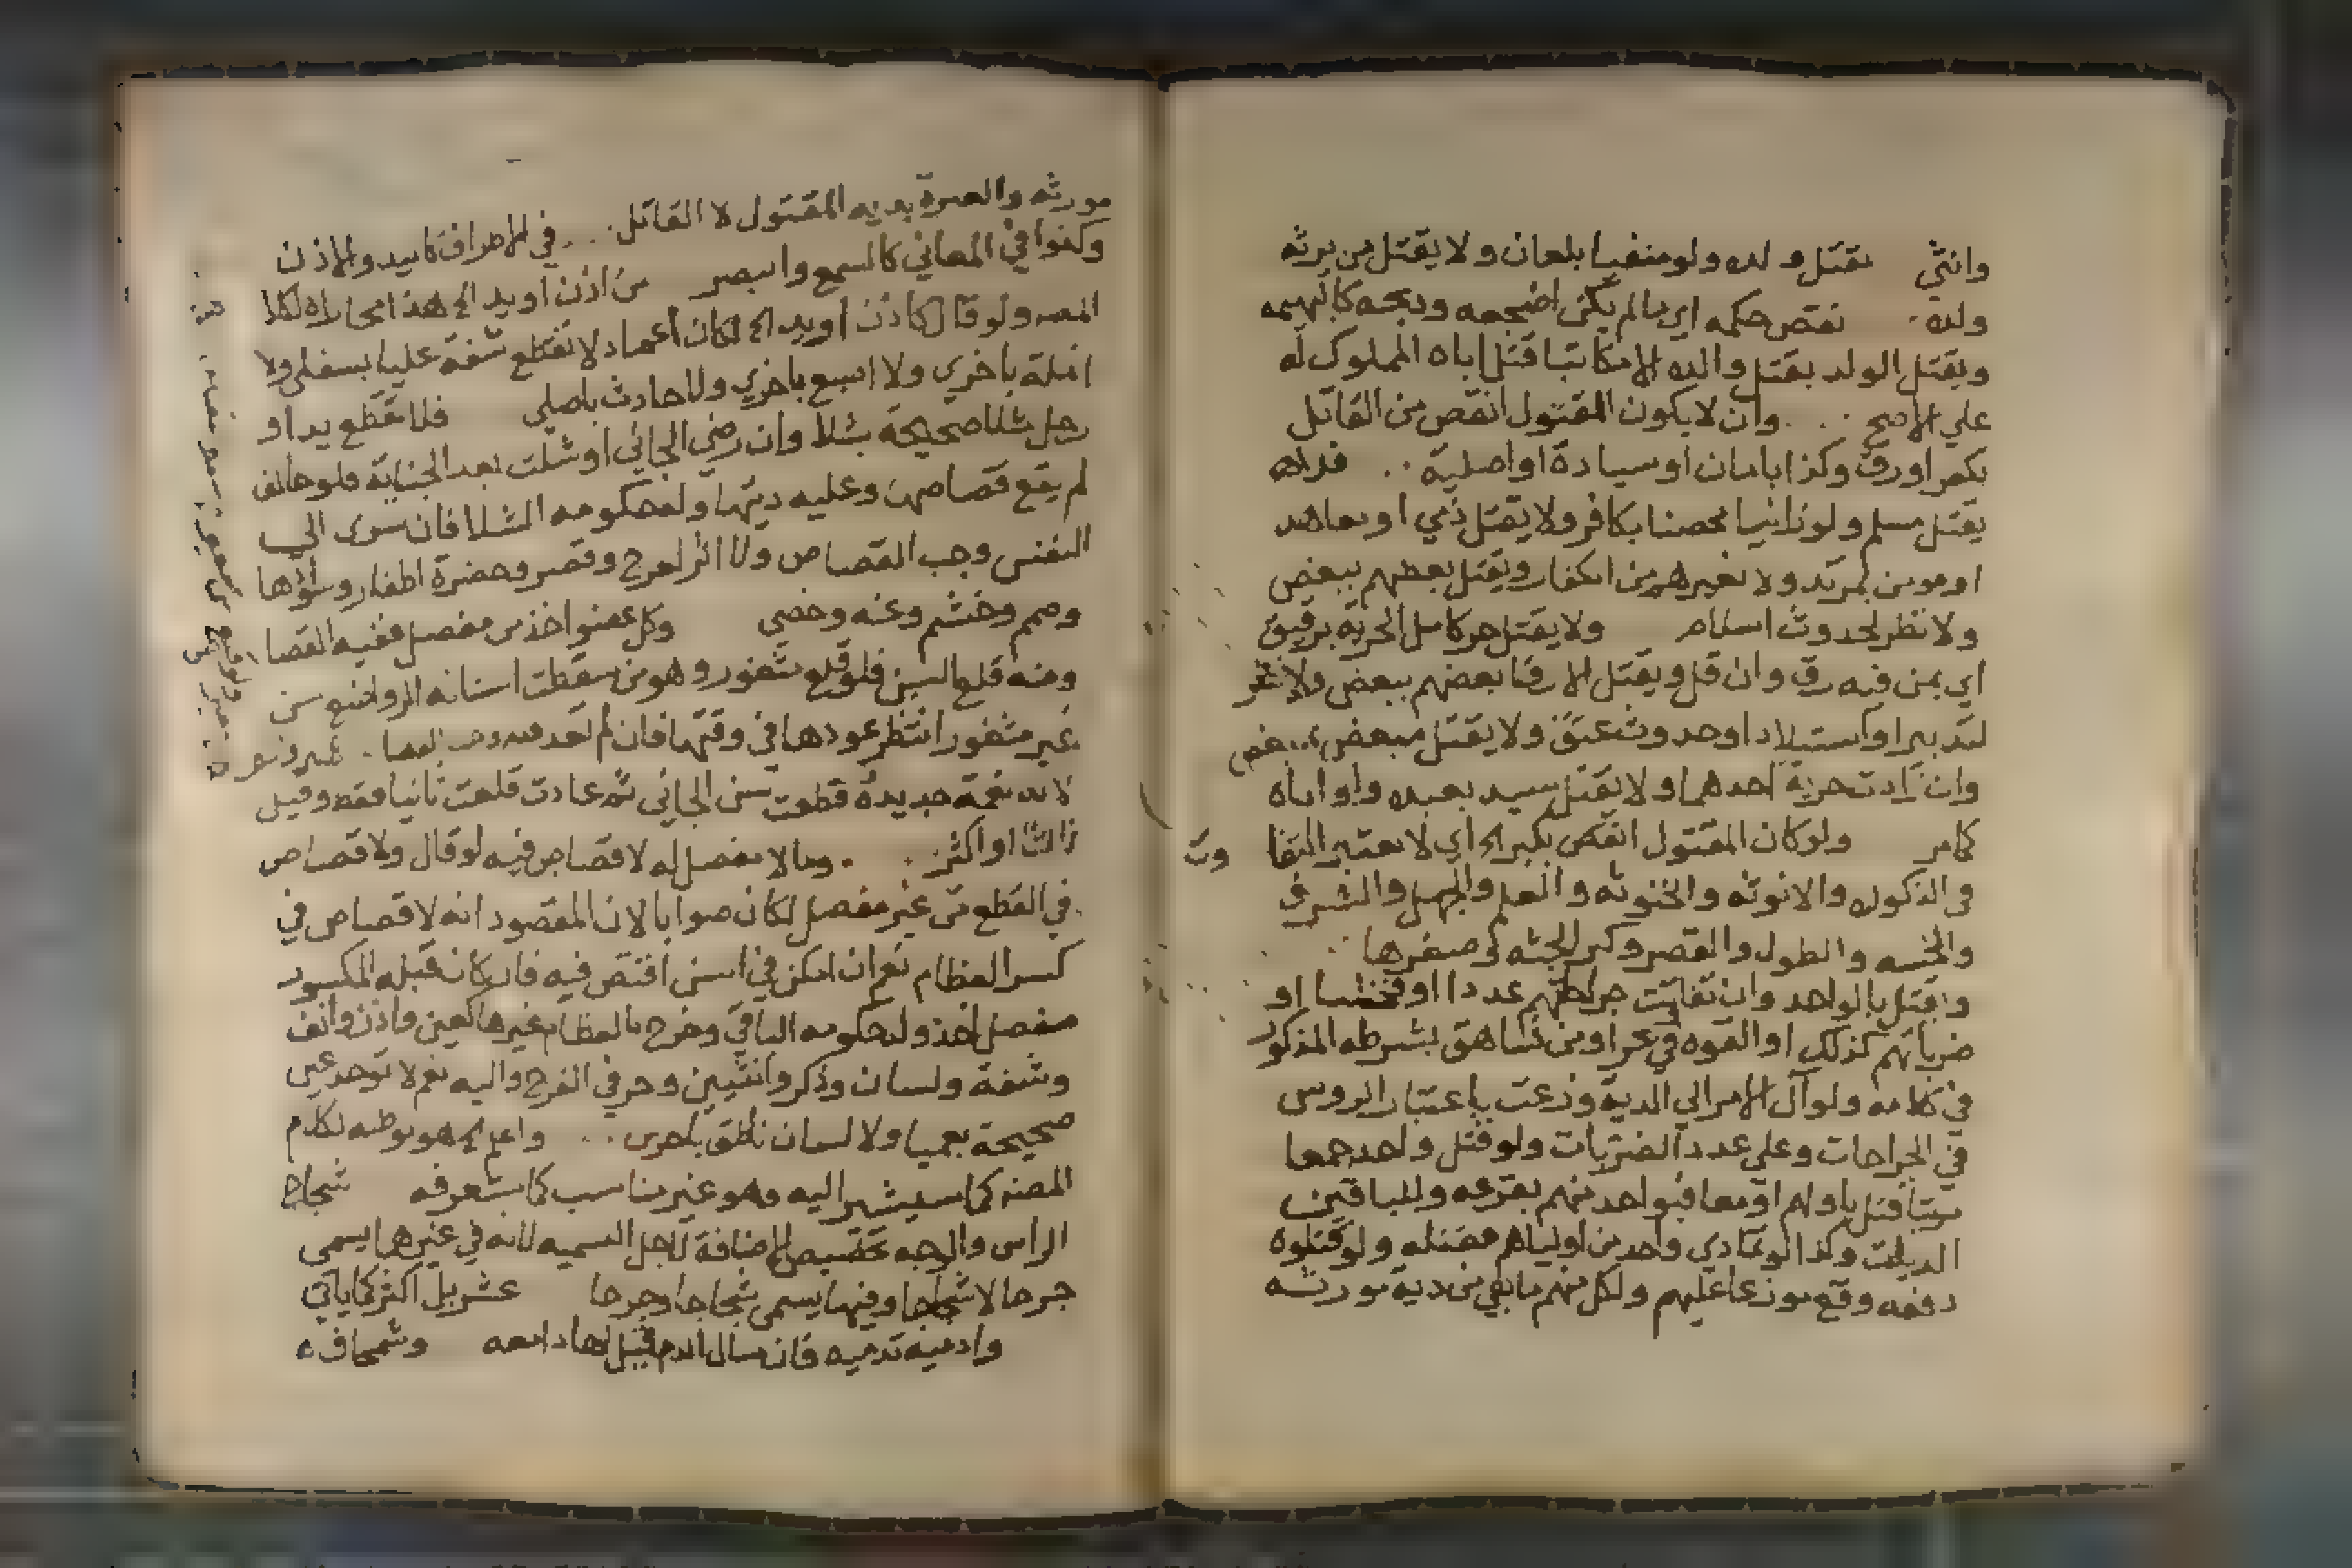 وانثي بقتل ولده ولو منفيا بلعان ولا يقتل من يرثه
ولده نقض حكمه اي مالم يكن اضجعه وذبحه كالبهيمه
ويقتل الولد بقتل والده الا مكاتبا قتل اباه المملوك له
علي الاصح وان لا يكون المقتول انقص من القاتل
بكفر او رق وكذا بامان او سيادة او اصلية فلا
يقتل مسلم ولو زانيا محصنا بكافر ولا يقتل ذمي او معاهد
او مومن بمرتد ولا بغيرهم من الكفار ويقتل بعضهم ببعض
ولا نظر لحدوث اسلام ولا يقتل حر كامل الحرية برقيق
اي بمن فيه رق وان قل ويقتل الارقا بعضهم ببعض ولا نظر
لتدبير او استيلاد او حدوث عتق ولا يقتل مبعض ببعض
وان زادت حرية احدهما ولا يقتل سيد بعبده ولو اباه
كامر ولو كان المقتول انقص بكبر الخ اي لا يعتبر التفا وت
في الذكوره والانوثه والخنوثه والعلم والجهل والشرف
والخسه والطول والقصر وكبر الجثه وصغرها
ويقتل بالواحد وان تفاوتت جراحتهم عددا او فحشا او
ضرباتهم كذلك او القوه في بحر او من شاهق بشرطه المذكور
في كلامه ولو آل الامر الي الدية وزعت باعتبار الروس
في الجراحات وعلي عدد الضربات ولو قتل واحد جمعا
مرتبا قتل باولهم او معا فبواحد منهم بقرعه وللباقين
الديات وكذا لو تمادي واحد من اوليائهم فقتله ولو قتلوه
دفعه وقع موزعا عليهم ولكل منهم ما بقي من دية مورثه
مورثه والعبرة بدية المقتول لا القاتل في الاطراف كاليد والاذن
وكذا في المعاني كالسمع والبصر من اذن او يد الخ هذا
المصـ ولو قال كاذن او يد الخ لكان ولا تقطع شفة عليا بسفلي ولا
انملة باخري ولا اصبع باخري ولا حادث باصلي فلا تقطع يد او
رجل صحيحة بشلا وان رضي الجاني او شلت بعد الجناية فلو خالف
لم يقع قصاصا وعليه ديتها وله حكومه الشلا فان سرى الي
النفس وجب القصاص ولا اثر لعرج وقصر وخضرة اظفار وسوادها
وصمم وخشم وعنه وخصي وكل عضو اخذ من مفصل ففيه القصاص
ومنه قلع السن فلو قلع مثغور وهو من سقطت اسنانه الرواضع سن
غير مثغور انتظر عودها في وقتها فان لم تعد فيه وجب القصا
لانه نعمة جديدة قطعت سن الجاني ثم عادت قلعت ثانيا فقط وقيل
ثالثا او اكثر وما لا مفصل له لا قصاص فيه لو قال ولا قصاص
في القطع من غير مفصل لكان صوابا لان المقصود انه لا قصاص في
كسر العظام نعم ان امكن في السن اقتص فيه فان كان قبله المكسور
مفصل اخذ وله حكومه الباقي وخرج بالعظام غيرها كعين واذن وانف
وشفة ولسان وذكر وانثيين وحرفي الفرج واليه نعم لا توخذ عين
صحيحة بعميا ولا لسان ناطق باخرس واعلم الخ هو توطيه لكلام
المصنف كما سيشير اليه وهو غير مناسب كما ستعرفه شجاج
الراس والوجه تخصيص الاضافة لاجل التسميه لانه في غيرها يسمي
جرحا لا شجاجا وفيها يسمي شجاجا وجرحا عشر بل اكثر كما ياتي
وادميه تدميه فان سال الدم قيل لها دامعه وسمحاق